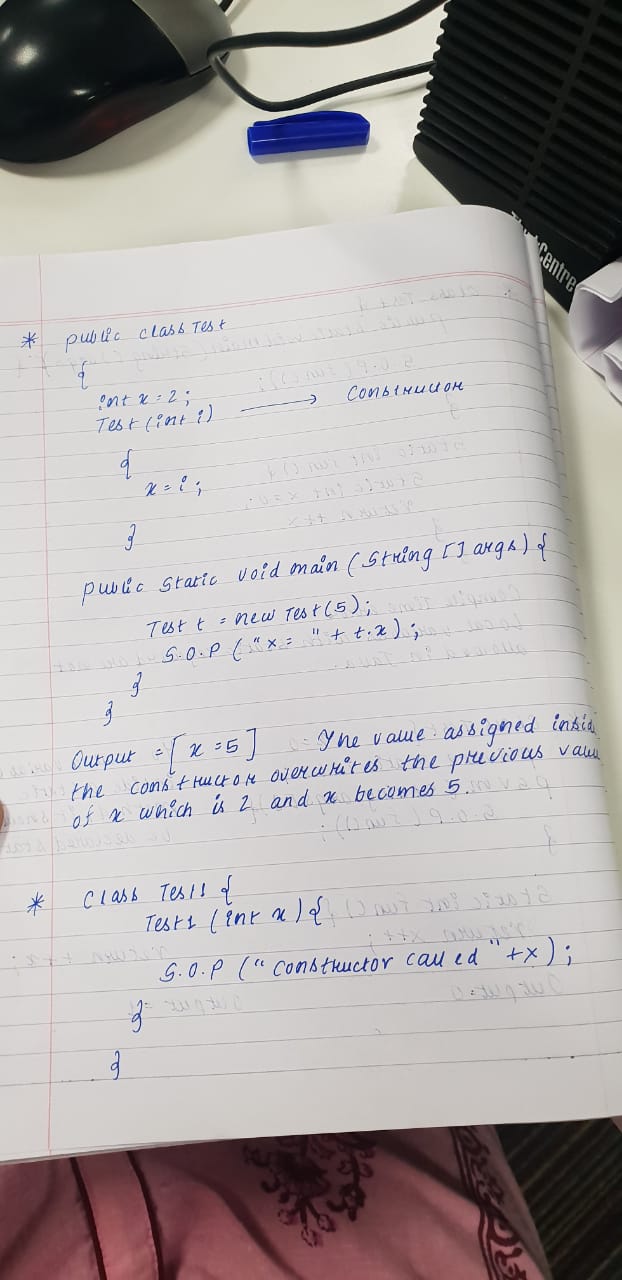 Centre
* public class Test
{
int x = 2;
Test (int i) → Constructor
{
x = i;
}
public static void main (String [] args) {
Test t = new Test(5);
S.O.P ("x = " + t.x);
}
}
Output = [x = 5] The value assigned
the constructor overwrites the previous
of x which is 2 and x becomes 5.
* Class Test1 {
Test1 (int x) {
S.O.P ("constructor called" + x);
}
}